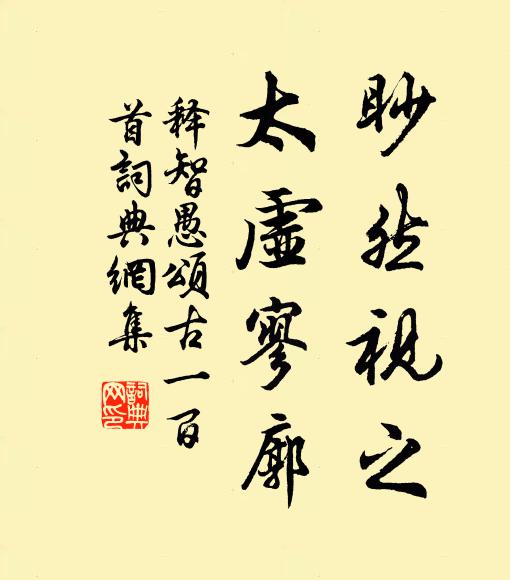 眇然視之
太虛寥廓
释智愚頌古一百
首詞典網集
詞典网印